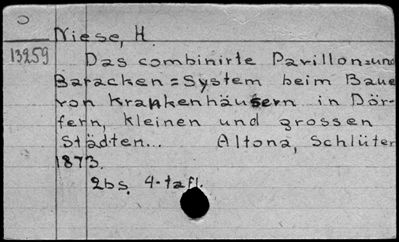 Niese, H.
13259
Das combinirte Pavillon=und
Baracken=System beim Baue
von Krankenhäusern in Dör-
fern, kleinen und grossen
Städten... Altona, Schlüter
1873.
2bs. 4-tafl.